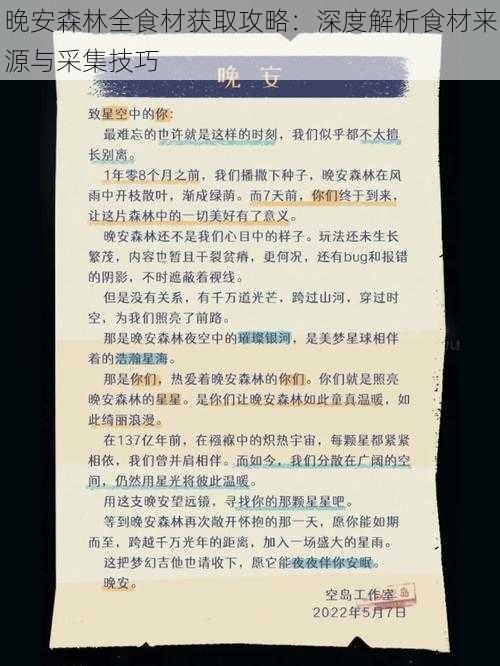 晚安森林全食材获取攻略：深度解析食材来
源与采集技巧
晚 安
致星空中的你：
最难忘的也许就是这样的时刻，我们似乎都不太擅
长别离。
1年零8个月之前，我们播撒下种子，晚安森林在风
雨中开枝散叶，渐成绿荫。而7天前，你们终于到来，
让这片森林中的一切美好有了意义。
晚安森林还不是我们心目中的样子。玩法还未生长
繁茂，内容也暂且干裂贫瘠，更何况，还有bug和报错
的阴影，不时遮蔽着视线。
但是没有关系，有千万道光芒，跨过山河，穿过时
空，为我们照亮了前路。
那是晚安森林夜空中的璀璨银河，是美梦星球相伴
着的浩瀚星海。
那是你们，热爱着晚安森林的你们。你们就是照亮
晚安森林的星星。是你们让晚安森林如此童真温暖，如
此绮丽浪漫。
在137亿年前，在襁褓中的炽热宇宙，每颗星都紧紧
相依，我们曾并肩相伴。而如今，我们分散在广阔的空
间，仍然用星光将彼此温暖。
用这支晚安望远镜，寻找你的那颗星星吧。
等到晚安森林再次敞开怀抱的那一天，愿你能如期
而至，跨越千万光年的距离，加入一场盛大的星雨。
这把梦幻吉他也请收下，愿它能夜夜伴你安眠。
晚安。
空岛工作室
2022年5月7日